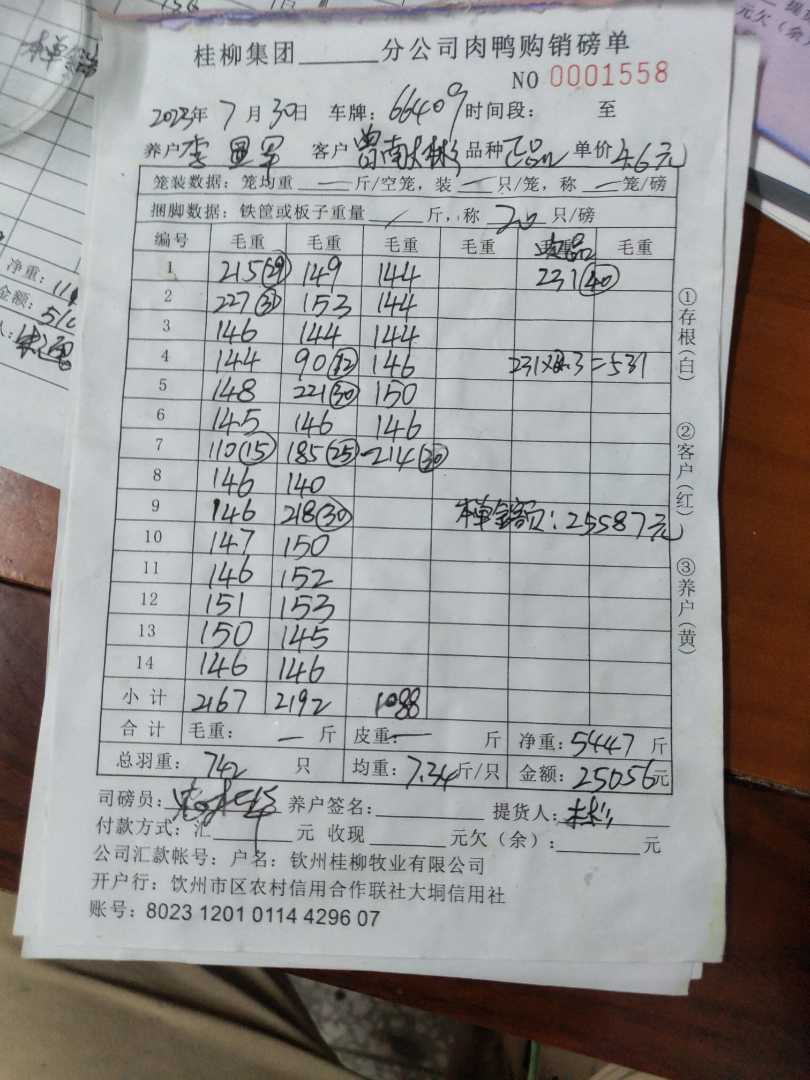 桂柳集团______分公司肉鸭购销磅单
NO 0001558
2023年 7月30日 车牌: 66409 时间段: 至
养户 李 客户 曾南 品种 正品 单价 4.6元
笼装数据: 笼均重 — 斤/空笼, 装 — 只/笼, 称 — 笼/磅
捆脚数据: 铁筐或板子重量 / 斤, 称 20 只/磅
编号 毛重 毛重 毛重 毛重 毛重
1 215(29) 149 144 231(40)
2 227(31) 153 144
3 146 144 144
4 144 90(12) 146 231×2.3=531
5 148 221(30) 150
6 145 146 146
7 110(15) 185(25) 214(30)
8 146 140
9 146 218(30) 本单金额: 25587元
10 147 150
11 146 152
12 151 153
13 150 145
14 146 146
小计 2167 2192 1088
合计 毛重: — 斤 皮重: — 斤 净重: 5447 斤
总羽重: 742 只 均重: 7.34斤/只 金额: 25056元
司磅员: 养户签名: 提货人:
付款方式: 汇______元 收现______元欠(余):______元
公司汇款帐号: 户名: 钦州桂柳牧业有限公司
开户行: 钦州市区农村信用合作联社大垌信用社
账号: 8023 1201 0114 4296 07
①存根(白)
②客户(红)
③养户(黄)
本单金
净重:
金额:
元欠(余)